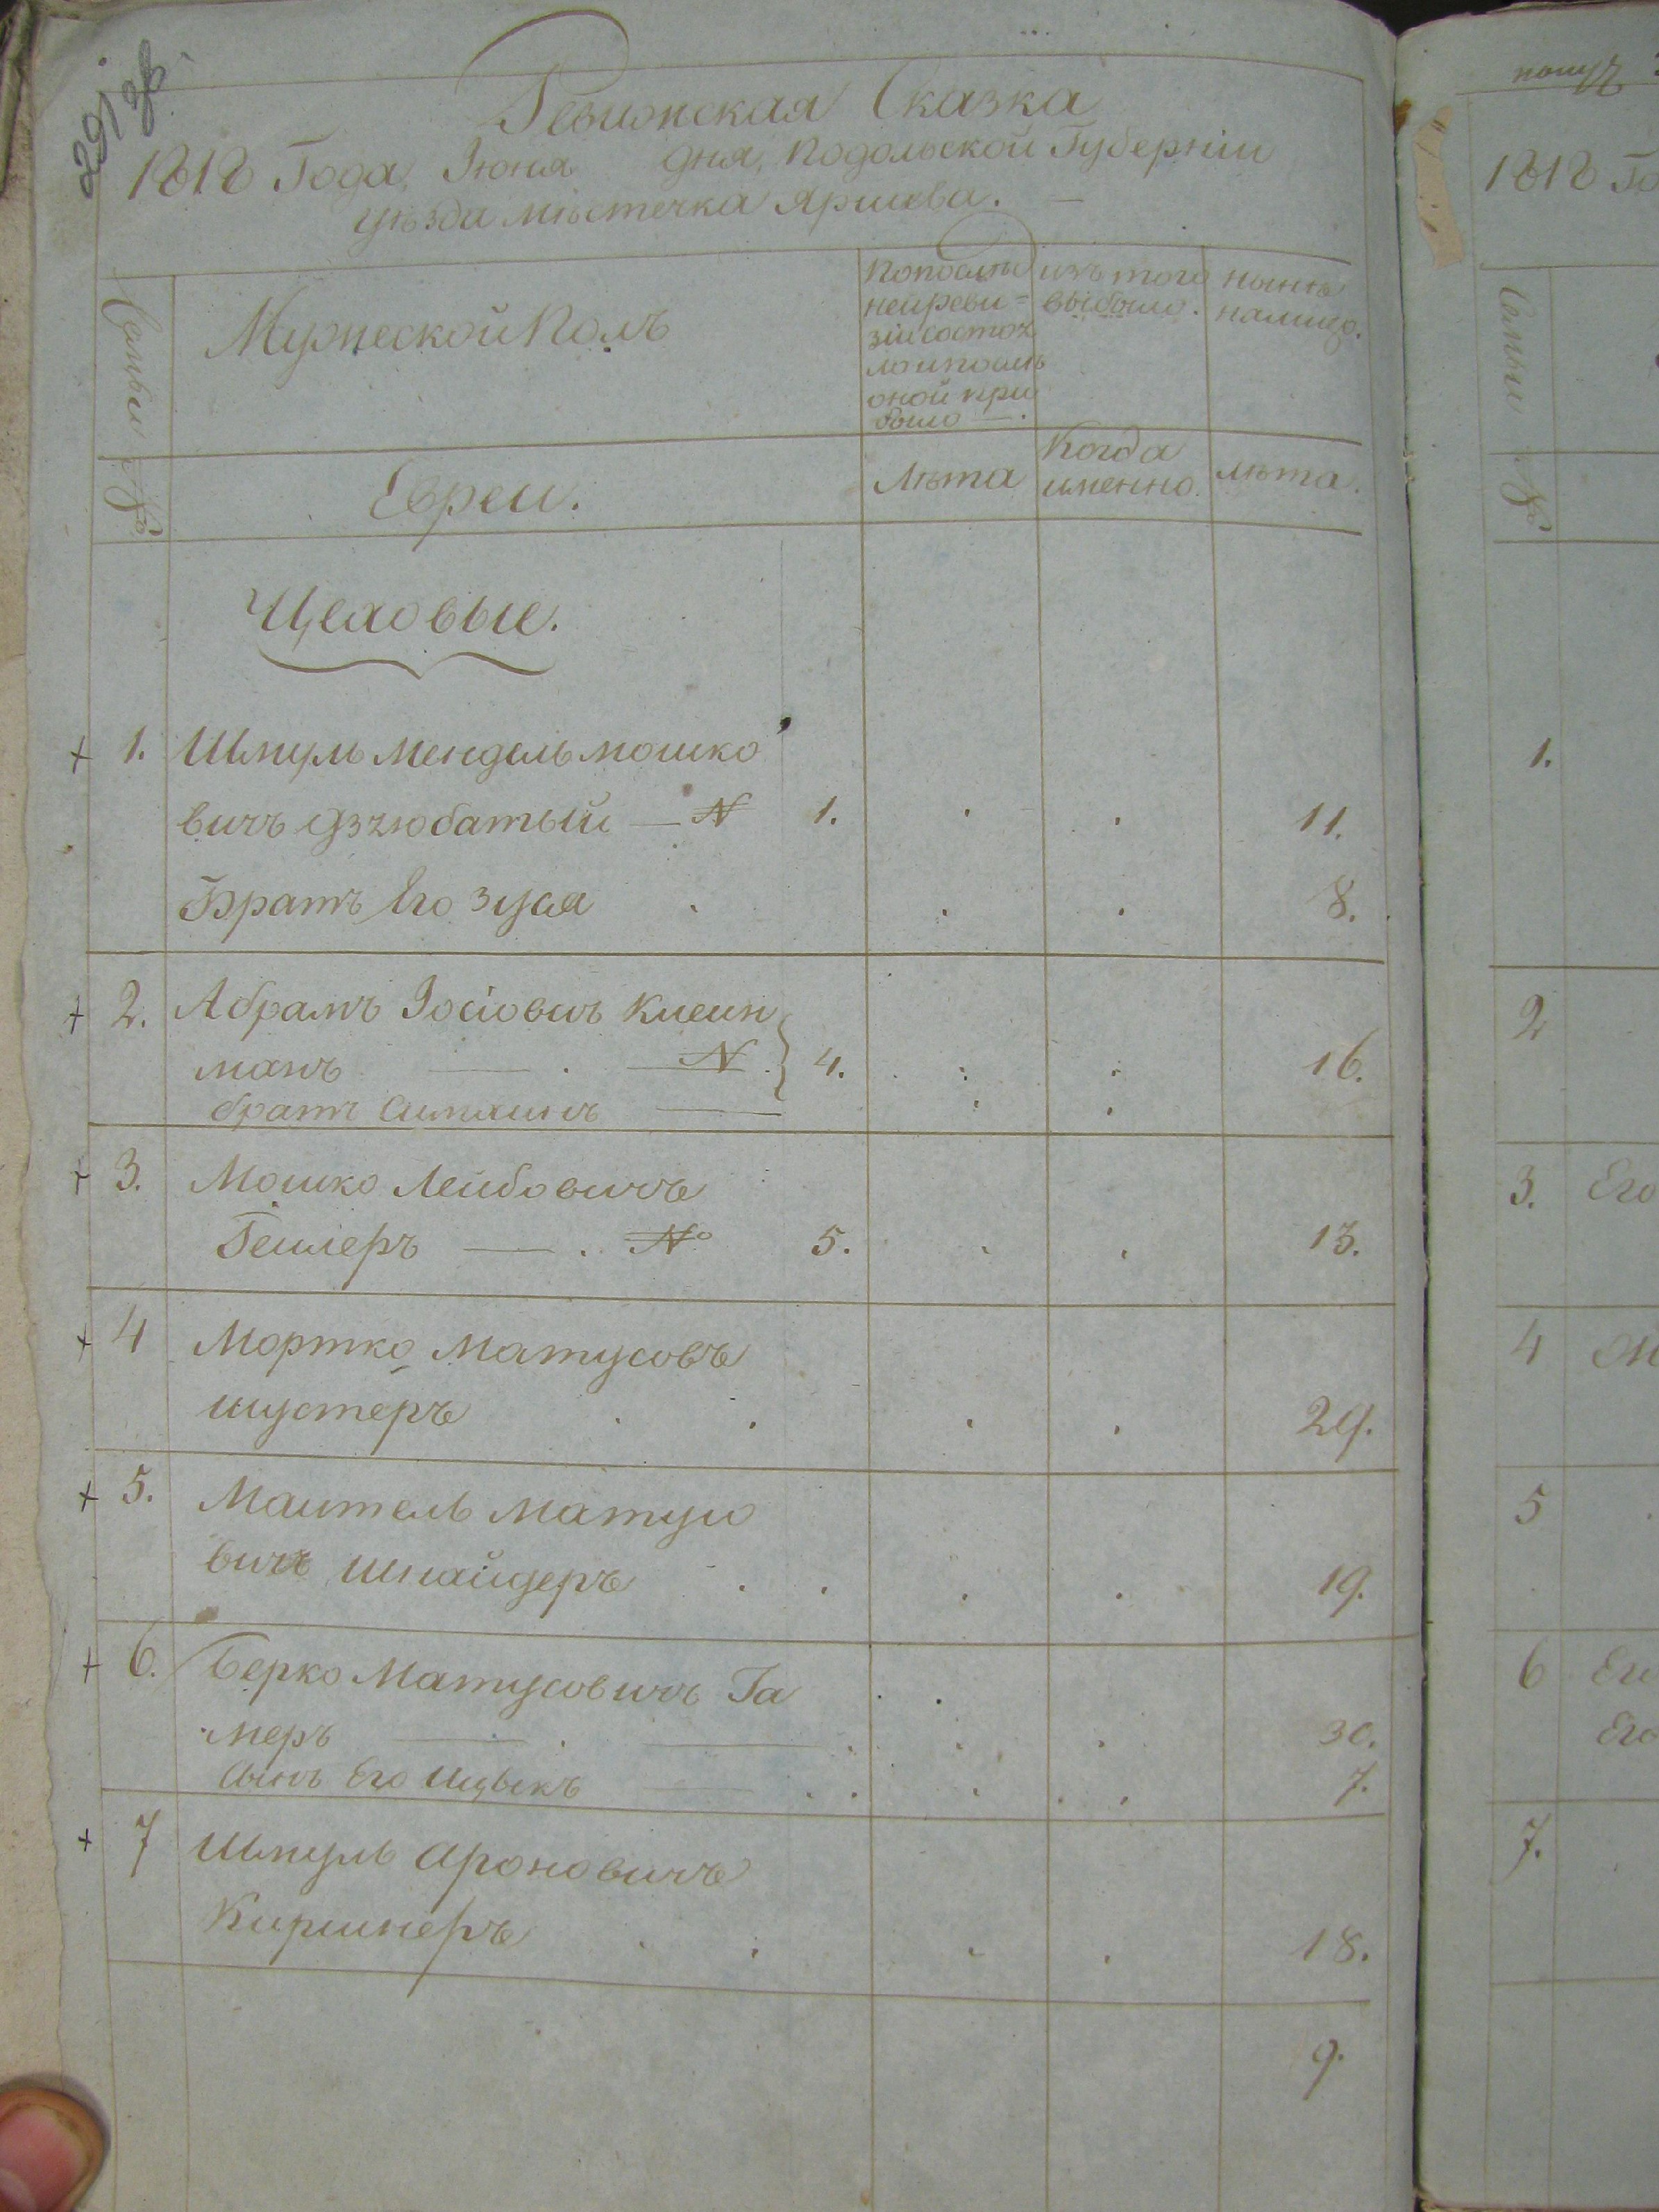 291 зв.
Ревижская Сказка
1818 Года, Июня дня, Подольской Губернии
уѣзда мѣстечка Яришева. —
Семьи №
Мужеской Полъ
По послѣд
ней реви=
зіи состоя
ло и послѣ
оной при
было —.
изъ того
выбыло.
нынѣ
налицо.
Евреи.
Лѣта
Когда
именно.
лѣта.
Цеховые.
+ 1. Шмуль Мендель мошко
вичъ Дзюбатый — № 1. 11.
Братъ Его Зуся 8.
+ 2. Абрамъ Іосіовичъ Клеин
манъ — № 4. 16.
братъ —
+ 3. Мошко Лейбовичъ
Гешлеръ — № 5. 13.
+ 4 Мортко Матусовъ
шустеръ 29.
+ 5. Маитель Матусо
вичъ шнайдеръ 19.
+ 6. Берко Матусовичъ Га
меръ — 30.
сынъ Его Ицыкъ — 7.
+ 7 Шмуль Ароновичъ
Киршнеръ 18.
9.
1818 Го
Семьи №
1.
2
3. Его
4
5
6 Его
Его
7.